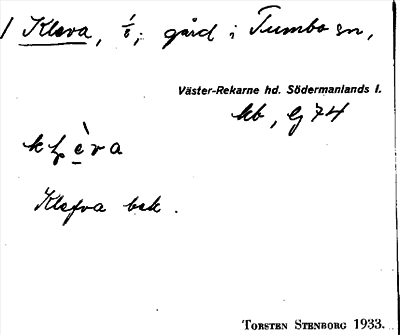 1 Kleva, 1/6; gård i Tumbo sn,
Väster-Rekarne hd. Södermanlands l.
kb, Ej 74
Klefva bek.
TORSTEN STENBORG 1933.